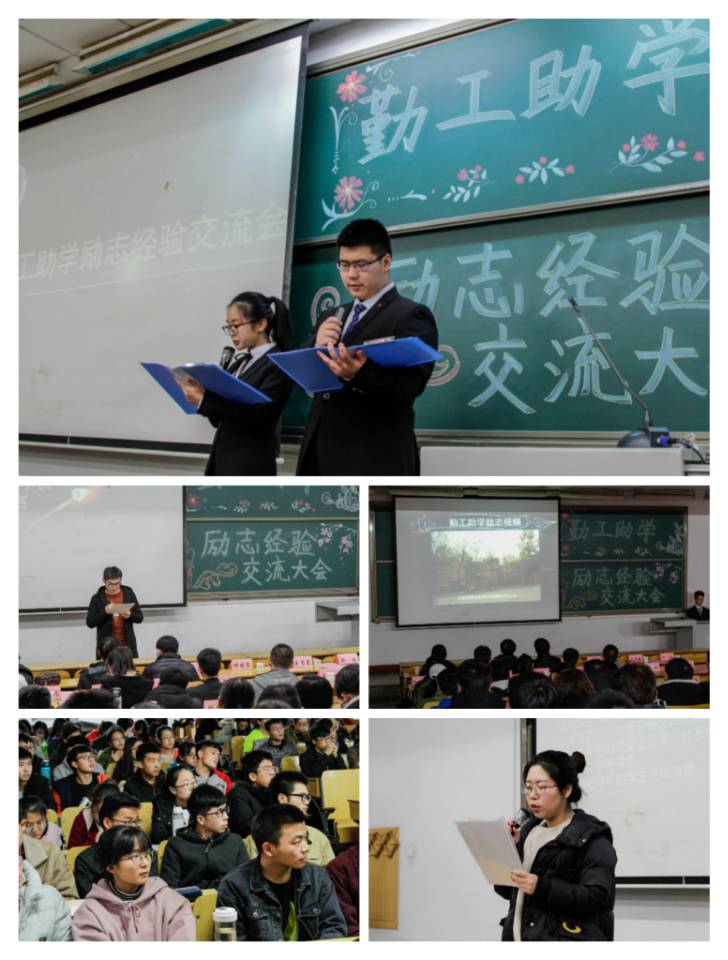 勤工助学
励志经验
交流大会
工助学励志经验交流会
励志经验
交流大会
勤工助学励志视频
勤工助学
励志经验
交流大会